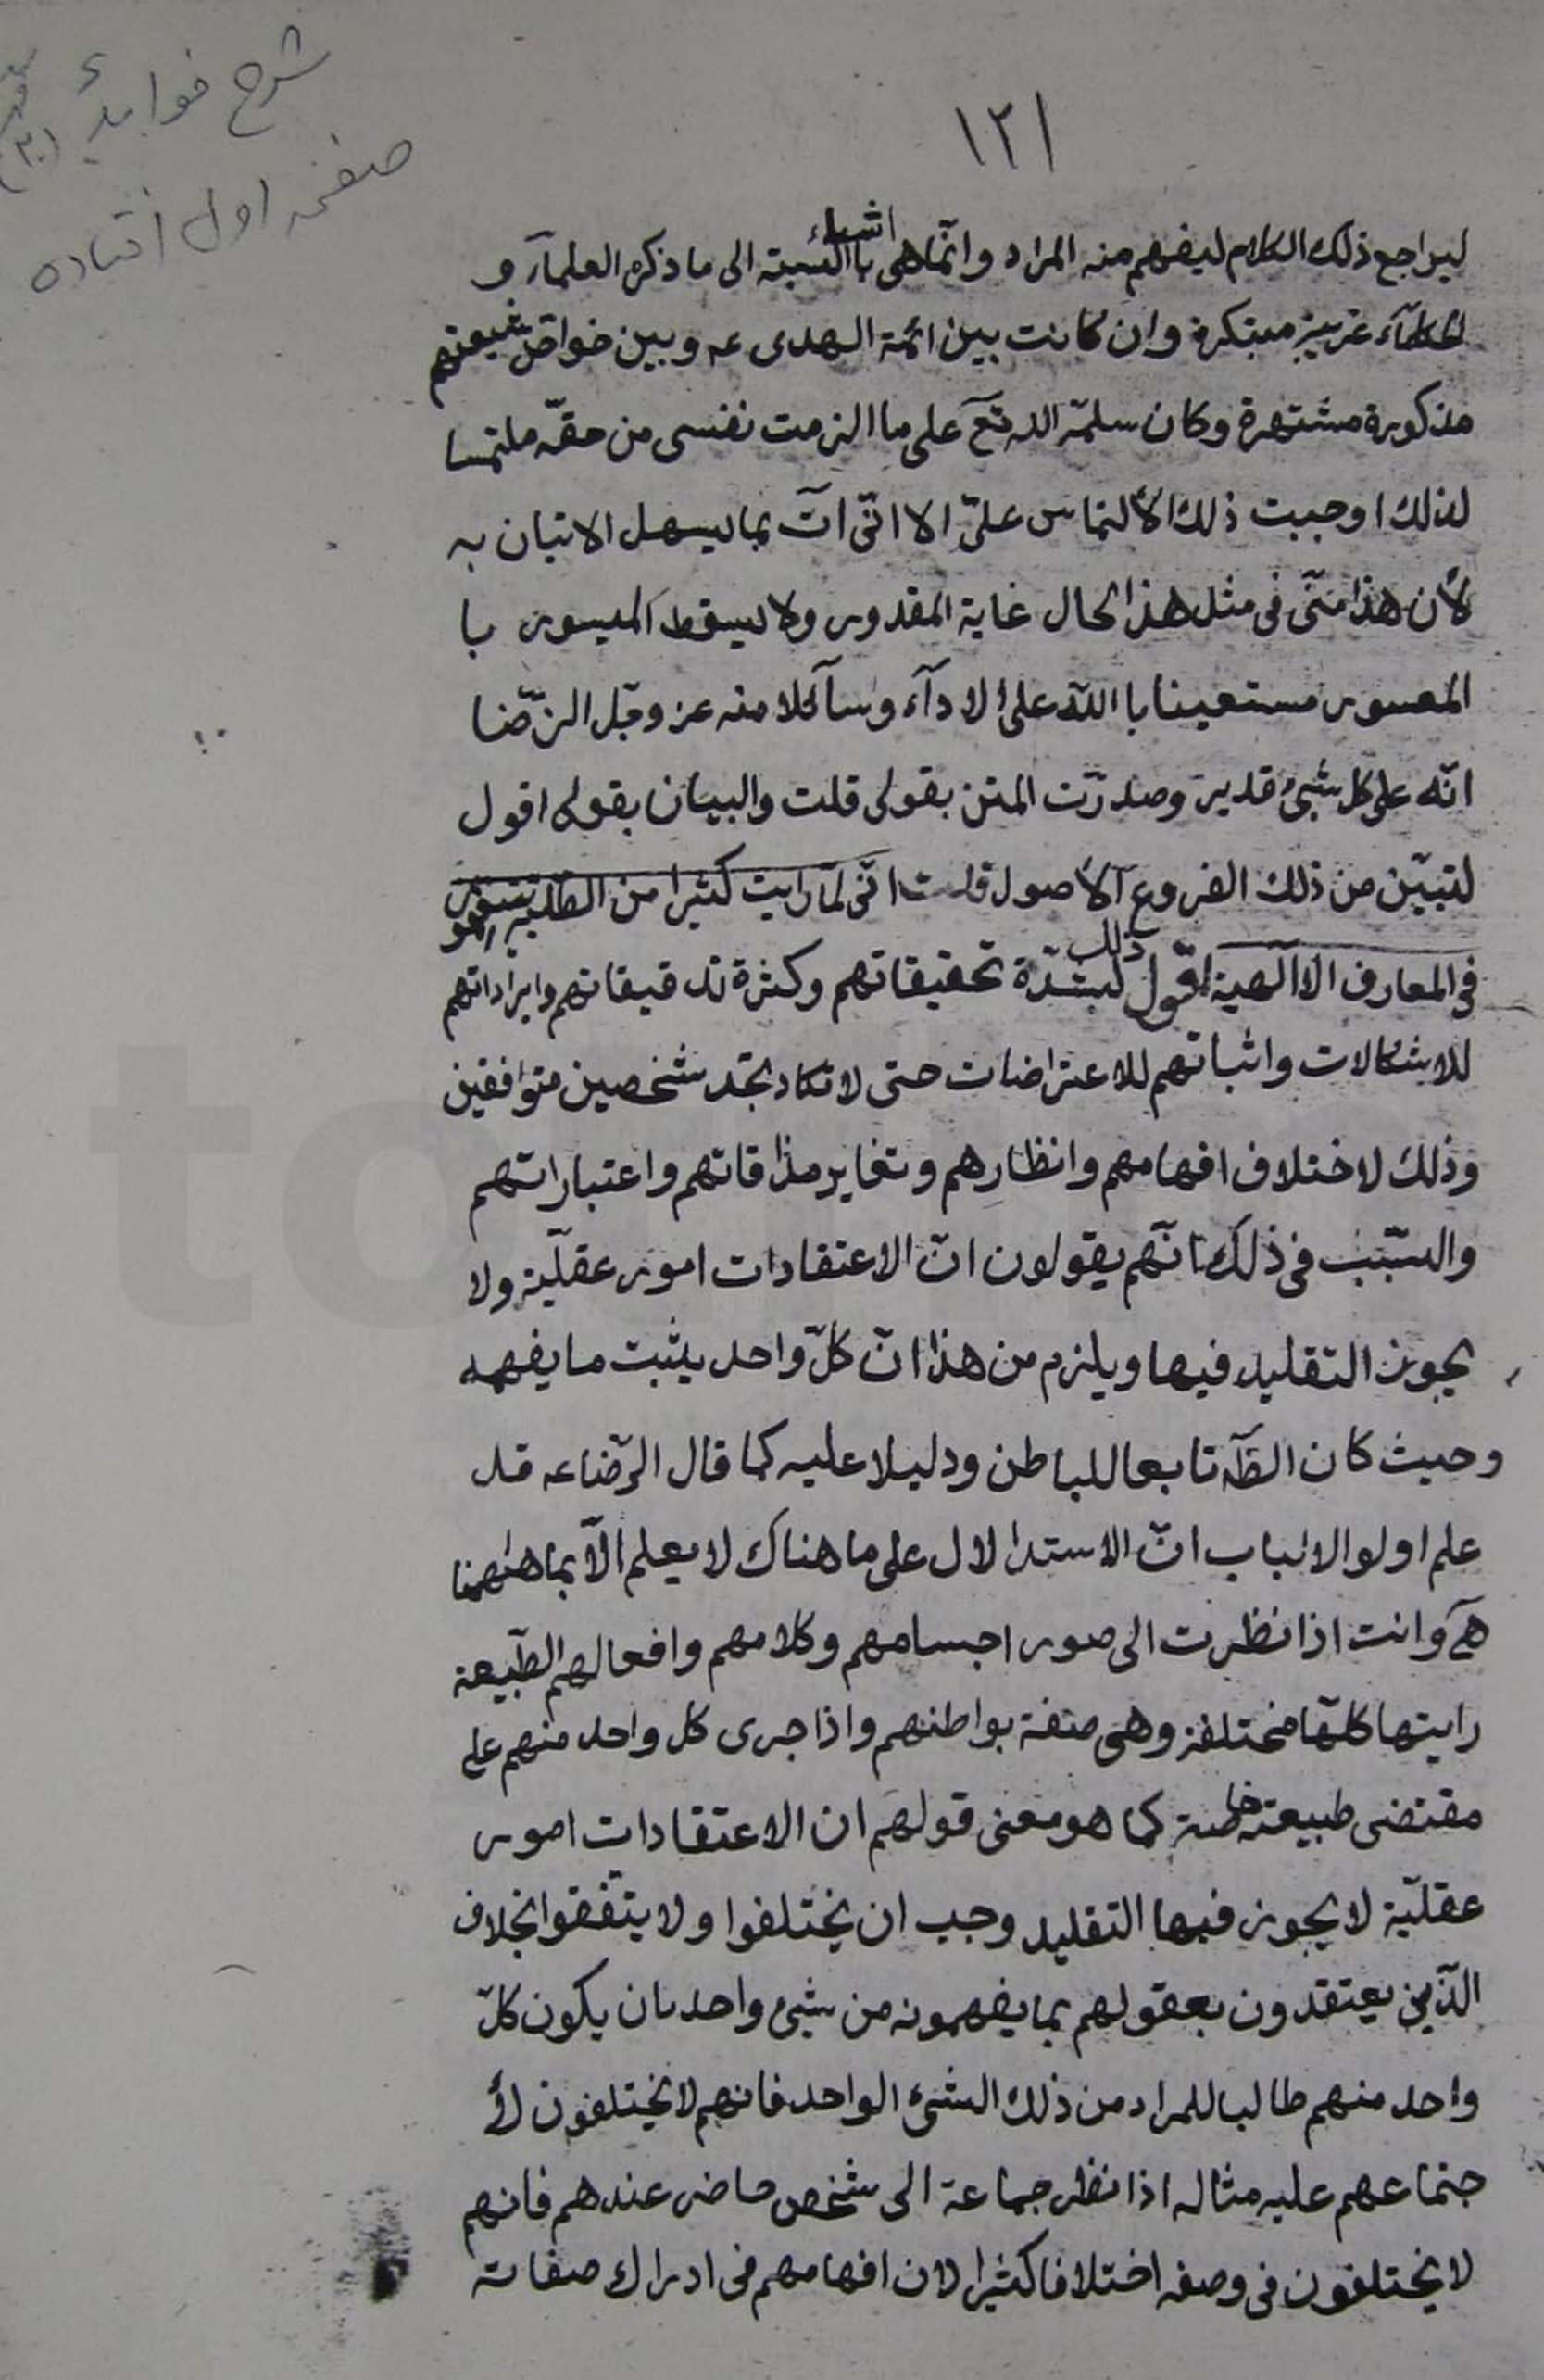 شرح فوايد
صفحه اول افتاده
١٢١
ليراجع ذلك الكلام ليفهم منه المراد وانّما هى اشياء بالنسبة الى ما ذكره العلمآء و
الحكمآء غريبة مبتكرة وان كانت بين ائمة الهدى عه وبين خواصّ شيعتهم
مذكورة مشتهرة وكان سلمه الله تع على ما الزمت نفسى من حقّه ملتمسا
لذلك اوجبت ذلك الالتماس علىّ الا انّى آت بما يسهل الاتيان به
لأن هذا منّى فى مثل هذا الحال غاية المقدور ولا يسقط الميسور با
المعسور مستعينا با الله على الادآء وسآئلا منه عز وجّل الرّضا
انّه على كل شىء قدير وصدرّت المتن بقولى قلت والبيان بقولى اقول
لتبيّن من ذلك الفروع الأصول قلت انّى لمّا رايت كثيرا من الطلبة يتعمقون
فى المعارف الاالهية اقول ذلك لشدّة تحقيقاتهم وكثرة تدقيقاتهم وايراداتهم
للاشكالات واثباتهم للاعتراضات حتى لا تكاد تجد شخصين متوافقين
وذلك لاختلاف افهامهم وانظارهم وتغاير مذاقاتهم واعتباراتهم
والسّبب فى ذلك انّهم يقولون انّ الاعتقادات امور عقليّة ولا
يجوز التقليد فيها ويلزم من هذا انّ كلّ واحد يثبت ما يفهمه
وحيث كان الظّه تابعا للباطن ودليلا عليه كما قال الرّضا عه قد
علم اولوا الالباب انّ الاستدلال على ما هناك لا يعلم الّا بما هاهنا
هآ وانت اذا نظرت الى صور اجسامهم وكلامهم وافعالهم الطّبيعة
رايتها كلّها مختلفة وهى صفة بواطنهم واذا جرى كل واحد منهم على
مقتضى طبيعته خاصة كما هو معنى قولهم ان الاعتقادات امور
عقليّة لا يجوز فيها التقليد وجب ان يختلفوا ولا يتّفقوا بخلاف
الّذين يعتقدون بعقولهم بما يفهمونه من شىء واحد بان يكون كلّ
واحد منهم طالبا للمراد من ذلك الشىء الواحد فانهم لا يختلفون لأ
جتماعهم عليه مثاله اذا نظر جماعة الى شخص حاضر عندهم فانهم
لا يختلفون فى وصفه اختلافا كثيرا لان افهامهم فى ادراك صفاته